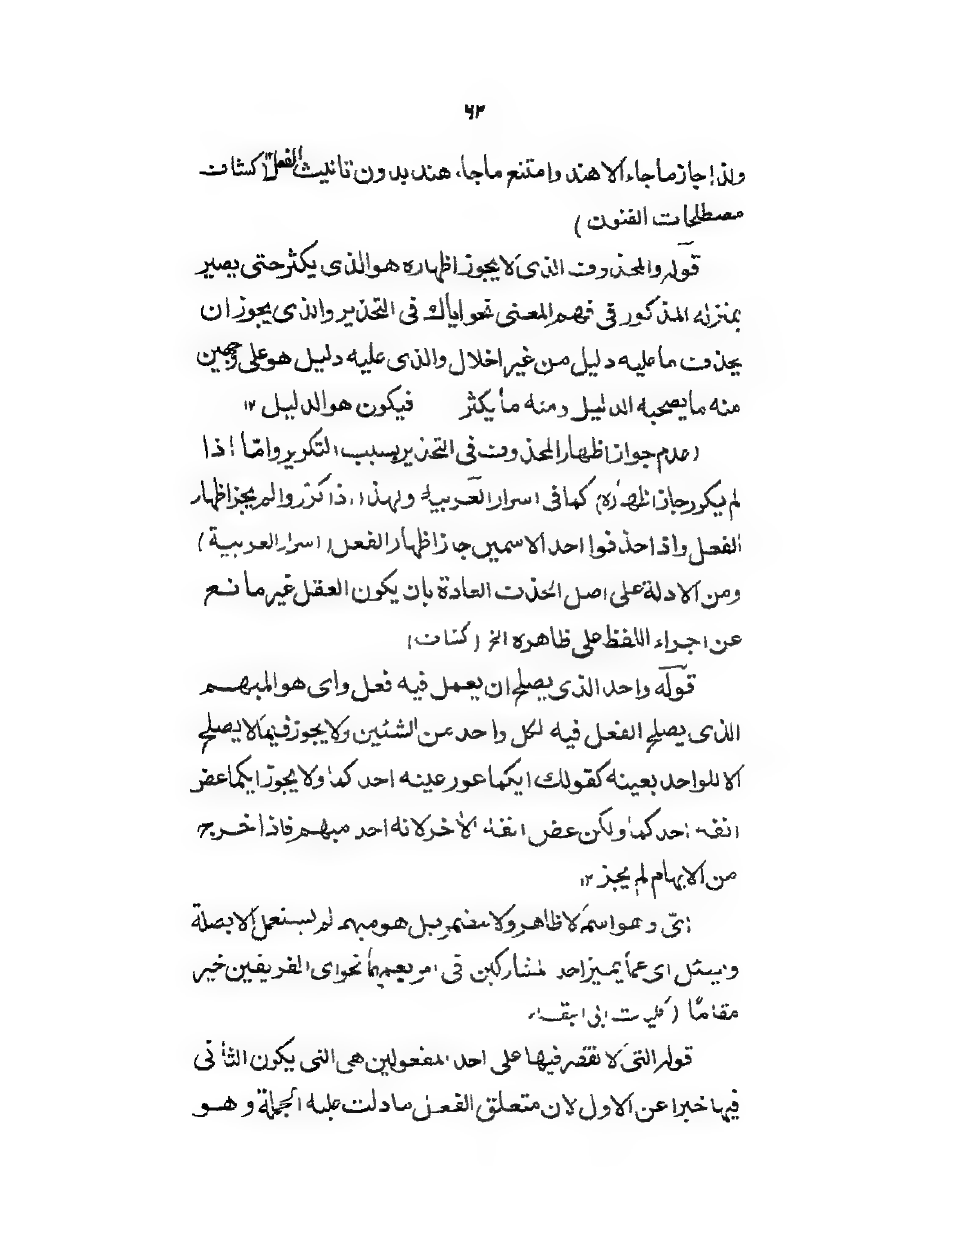 ۶۳
ولذا جاز ما جاء الا هند وامتنع ما جاء هند بدون تانيث الفعل (كشاف
مصطلحات الفنون)
قوله والمحذوف الذى لا يجوز اظهاره هو الذى يكثر حتى يصير
بمنزلة المذكور فى فهم المعنى نحو اياك فى التحذير والذى يجوز ان
يحذف ما عليه دليل من غير اخلال والذى عليه دليل هو على وجهين
منه ما يصحبه الدليل ومنه ما يكثر فيكون هو الدليل ١٢
(عدم جواز اظهار المحذوف فى التحذير بسبب التكرير واما اذا
لم يكرر جاز اظهاره كما فى اسرار العربية ولهذا اذا كرروا لم يجز اظهار
الفعل واذا حذفوا احد الاسمين جاز اظهار الفعل (اسرار العربية)
ومن الادلة على اصل الحذف العادة بان يكون العقل غير مانع
عن اجراء اللفظ على ظاهره الخ (كشاف)
قوله واحد الذى يصلح ان يعمل فيه فعل واى هو المبهم
الذى يصلح الفعل فيه لكل واحد من الشئين ولا يجوز فيما لا يصلح
الا للواحد بعينه كقولك ايكما عور عينه احد كما ولا يجوز ايكما عض
انفه احد كما ولكن عض انفه الآخر لانه احد مبهم فاذا خرج
من الابهام لم يجز ١٢
اىّ وهو اسم لا ظاهر ولا مضمر بل هو مبهم لم يستعمل الا بصلة
ويسئل اى عما يميز احد المشاركين فى امر يعمهما نحو اى الفريقين خير
مقاما (كليات ابى البقاء
قوله التى لا نقتصر فيها على احد المفعولين هى التى يكون الثانى
فيها خبرا عن الاول لان متعلق الفعل ما دلت عليه الجملة وهو